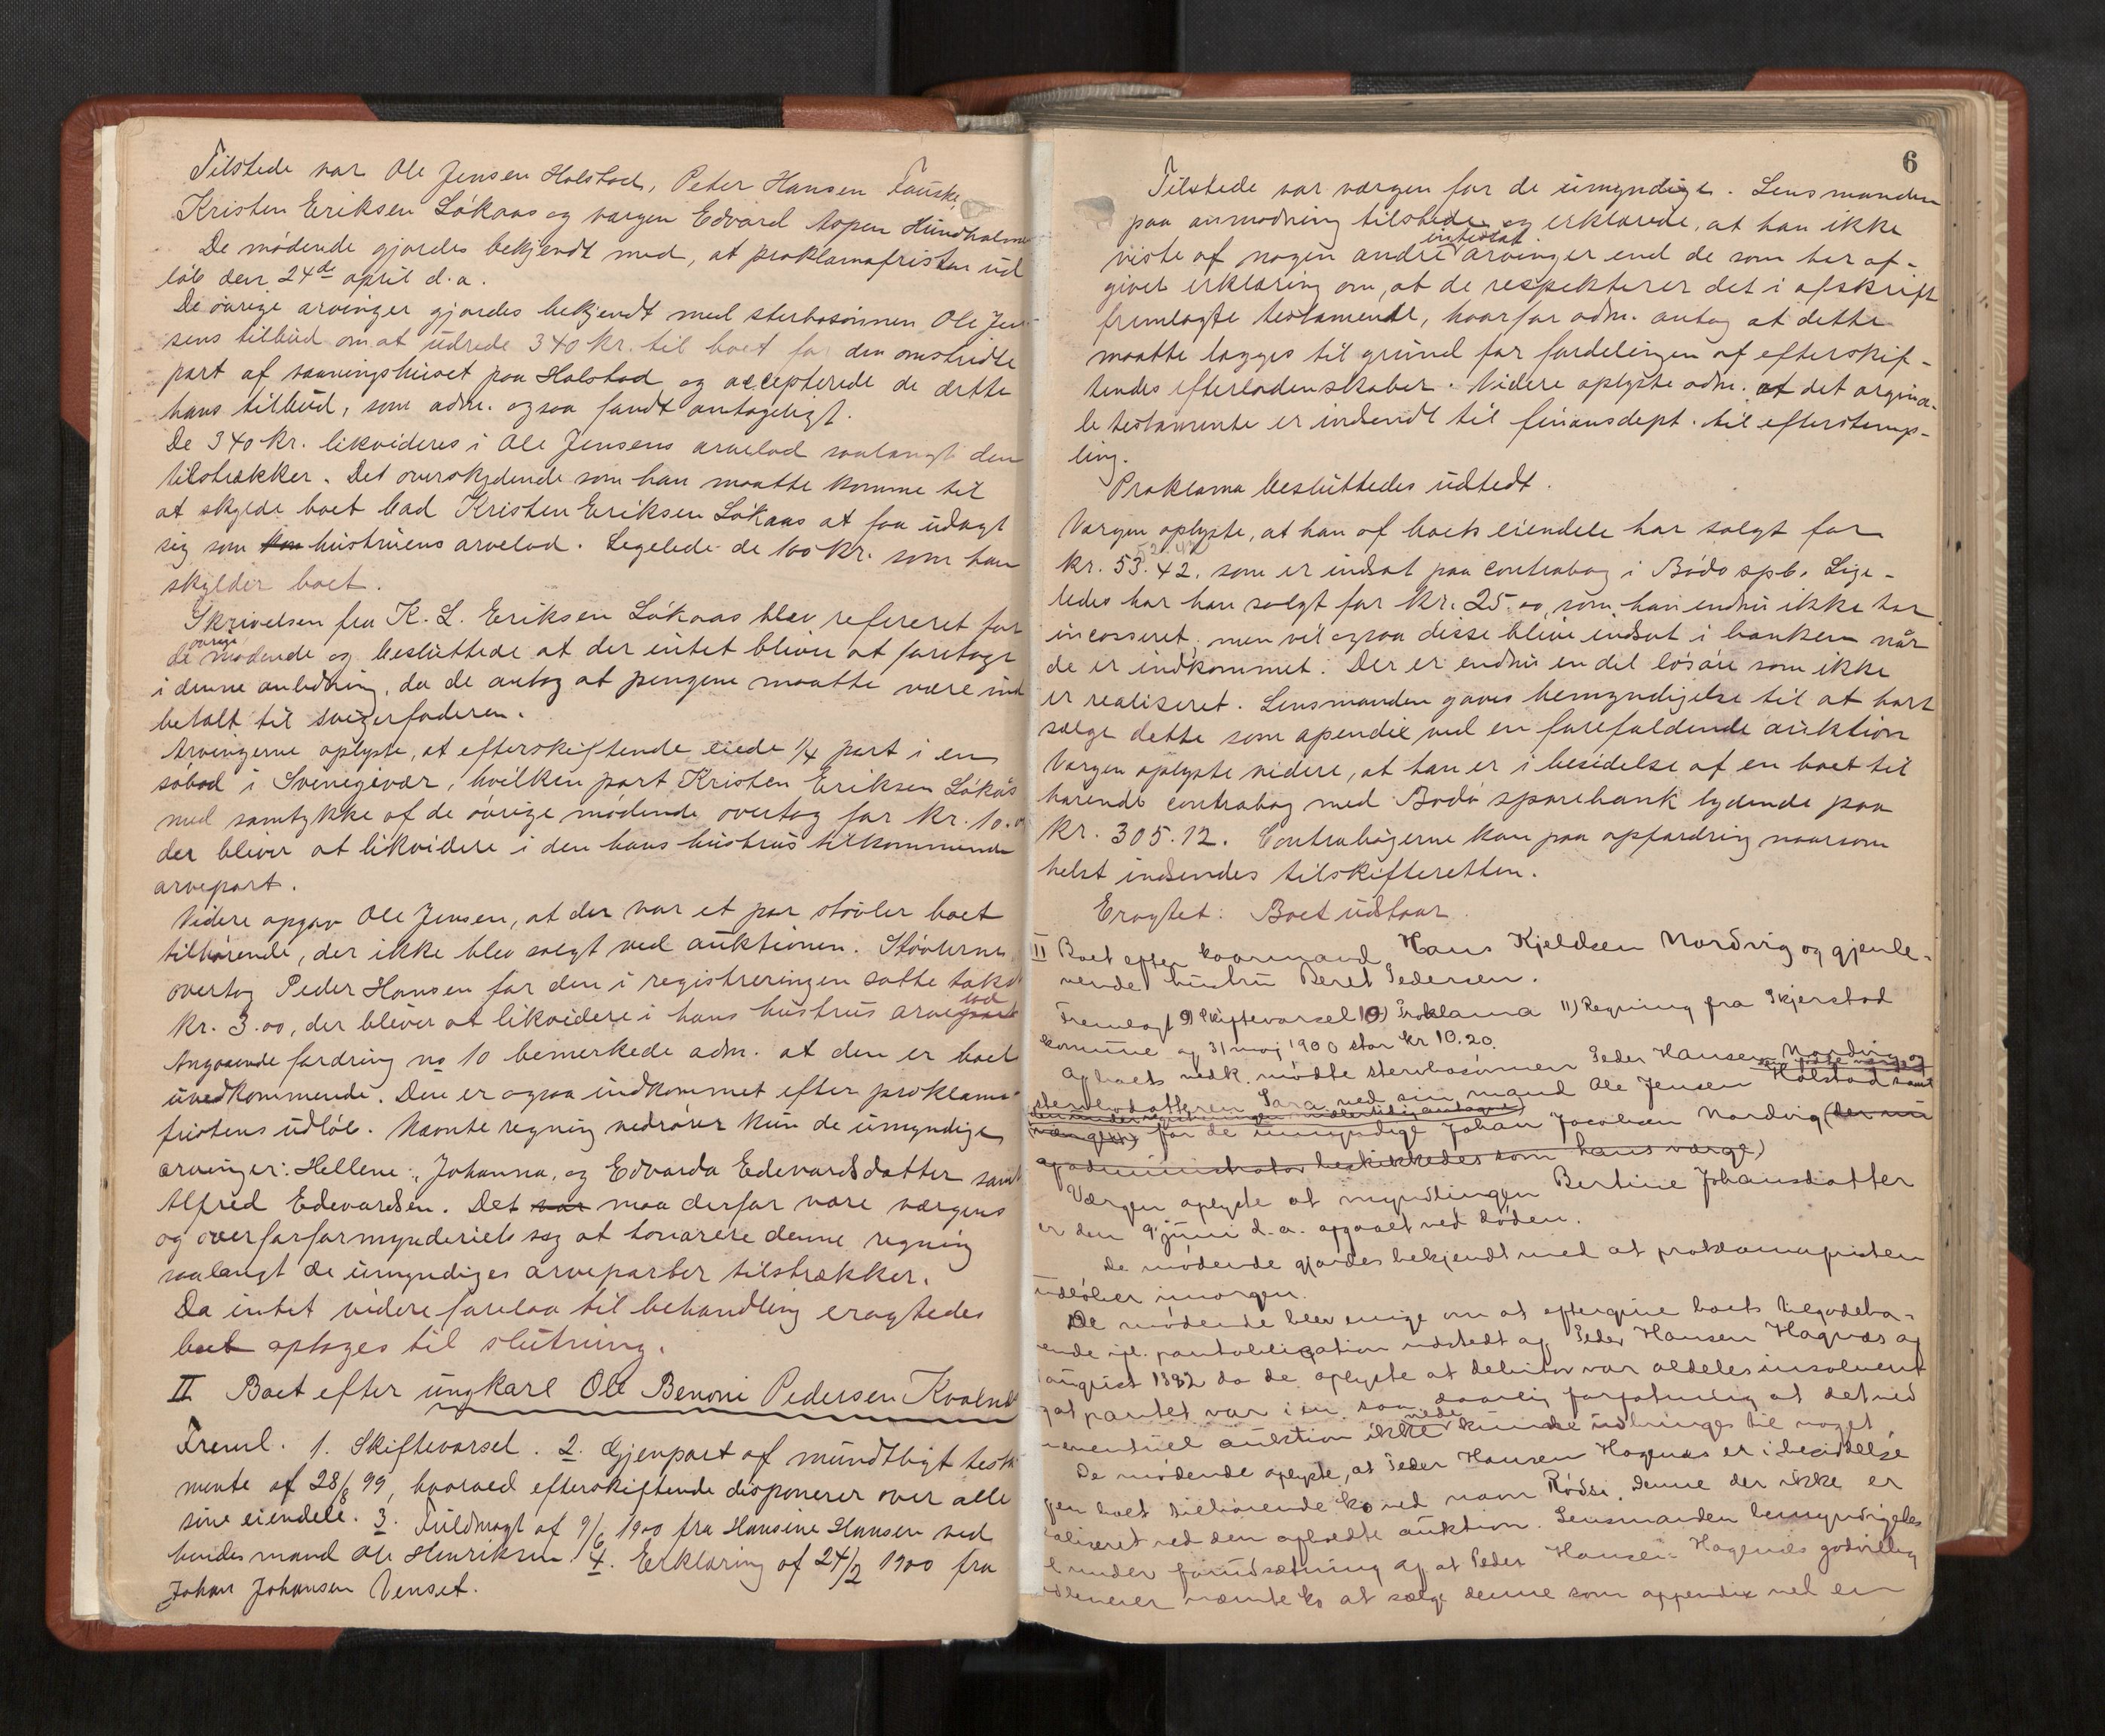 Tilstede var Ole Jensen Holstad, Peter Hansen Fauske,
Kristen Eriksen Løkaas og værgen Edvard Aspen Hundholmen
De mødende gjordes bekjendt med, at proklamafristen ud
løb den 24de april d.a.
De øvrige arvinger gjordes bekjendt med sterbosønnen Ole Jen-
sens tilbud om at udrede 340 kr. til boet for den omstridte
part af vaaningshuset paa Holstad og accepterede de dette
hans tilbud, som adm. ogsaa fandt antageligt.
De 340 kr. likvideres i Ole Jensens arvelod saalangt den
tilstrækker. Det overskydende som han maatte komme til
at skylde boet bad Kristen Eriksen Løkaas at faa udlagt
sig som hustruens arvelod. Ligelede de 100 kr. som han
skylder boet.
Skrivelsen fra K. L. Eriksen Løkaas blev refereret for
de øvrige mødende og besluttede at der intet bliver at foretage
i denne anledning, da de antog at pengene maatte være ind
betalt til svigerfaderen.
Arvingerne oplyste, at efterskiftende eiede 1/4 part i en
søbod i Svinegivær, hvilken part Kristen Eriksen Løkås
med samtykke af de øvrige mødende overtog for kr. 10.00
der bliver at likvidere i den hans hustrus tilkommende
arvepart.
Videre opgav Ole Jensen, at der var et par støvler boet
tilhørende, der ikke blev solgt ved auktionen. Støvlerne
overtog Peder Hansen for den i registreringen satte takst
kr. 3.00, der bliver at likvidere i hans hustrus arvelod
Angaaende fordring no 10 bemerkede adm. at den er boet
uvedkommende. Den er ogsaa indkommet efter proklama-
fristens udløb. Nævnte regning vedrører kun de umyndige
arvinger: Hellene, Johanna, og Edvarda Edevardsdatter samt
Alfred Edevardsen. Det var maa derfor være værgens
og overformynderiets sag at honorere denne regning
saalangt de umyndiges arveparter tilstrækker.
Da intet videre forelaa til behandling eragtedes
boet optages til slutning.
II Boet efter ungkarl Ole Benoni Pedersen Kvalnes
Freml. 1. Skiftevarsel. 2. Gjenpart af mundtligt testa
mente af 28/8 99, hvorved efterskiftende disponerer over alle
sine eiendele. 3. Fuldmagt af 9/6 1900 fra Hansine Hansen ved
hendes mand Ole Henriksen 4. Erklæring af 24/2 1900 fra
Johan Johansen Venset.
6
Tilstede var værgen for de umyndige. Lensmanden
paa anmodning tilstede og erklærede, at han ikke
viste af nogen andre intestat arvinger end de som har af-
givet erklæring om, at de respekterer det i afskrift
fremlagte testamente, hvorfor adm. antog at dette
maatte lægges til grund for fordelingen af efterskif-
tendes efterladenskaber. Videre oplyste adm. at det orgina-
le testamente er indsendt til finansdept. til efterstemp-
ling.
Proklama besluttedes udstedt.
Værgen oplyste, at han af boets eiendele har solgt for
kr. 53.42. som er indsat paa contrabog i Bodø spb. Lige-
ledes har han solgt for kr. 25.00, som han endnu ikke har
incasseret, men vil ogsaa disse blive indsat i banken når
de er indkommet. Der er endnu en del løsøre som ikke
er realiseret. Lensmanden gaves bemyndigelse til at bort
sælge dette som apendix ved en forefaldende auktion
Værgen oplyste videre, at han er i besidelse af en boet til
hørende contrabog med Bodø sparebank lydende paa
kr. 305.12. Contrabøgerne kan paa opfordring naarsom
helst indsendes til skifteretten.
Eragtet: Boet udstaar.
II Boet efter kaarmand Hans Kjeldsen Nordvig og gjenle-
vende hustru Beret Pedersen.
Fremlagt 9) Skiftevarsel 10) Proklama 11) Regning fra Skjerstad
komune af 31 maj 1900 stor kr 10.20.
Af boets vedk. mødte sterbosønnen Peder Hansen Nordvig
sterbodatteren Sara ved sin mand Ole Jensen Holstad samt
for de umyndige Johan Jacobsen Nordvig (der nu
af administrator beskikkedes som hans værge)
Værgen oplyste at myndlingen Bertine Johansdatter
er den 9 juni d.a. afgaaet ved døden.
De mødende gjordes bekjendt med at proklamafristen
udløber imorgen.
De mødende blev enige om at eftergive boets tilgodeha-
vende ifl. pantobligation udstedt af Peder Hansen Hagnes af
august 1882 da de oplyste at debitor var aldeles insolvent
og at pantet var i en saa daarlig forfatning at det ved
eventuel auktion ikke kunde udbringes til noget
De mødende oplyste, at Peder Hansen Hagenes er i besiddelse
af en boet tilhørende ko ved navn Rødsi. Denne der ikke er
realiseret ved den afholdte auktion. Lensmanden bemyndigedes
til under forudsætning af at Peder Hansen Hagenes godvillig
udleverer nævnte ko at sælge denne som appendix ved en